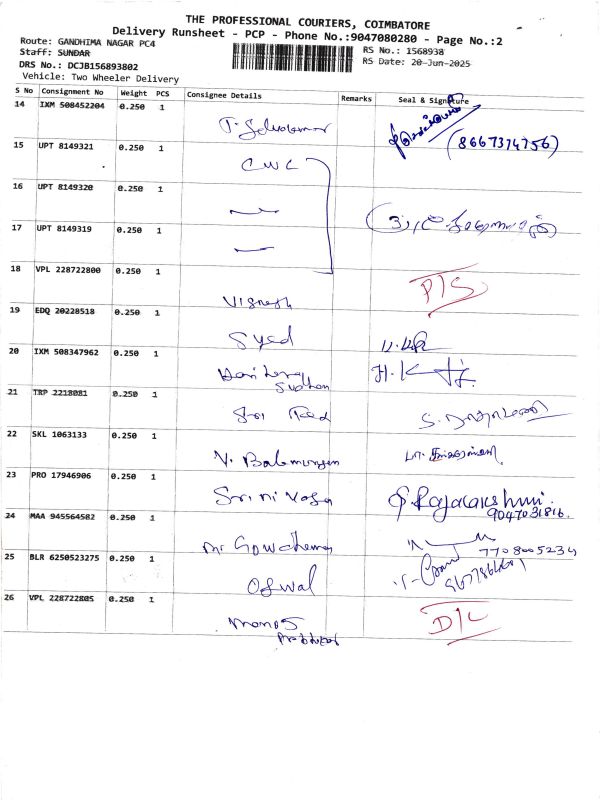 THE PROFESSIONAL COURIERS, COIMBATORE
Delivery Runsheet - PCP - Phone No.:9047080280 - Page No.:2
Route: GANDHIMA NAGAR PC4
Staff: SUNDAR
RS No.: 1568938
DRS No.: DCJB156893802
RS Date: 20-Jun-2025
Vehicle: Two Wheeler Delivery
S No Consignment No Weight PCS Consignee Details Remarks Seal & Signature
14 IXM 508452204 0.250 1
(8667374756)
15 UPT 8149321 0.250 1
CWC
16 UPT 8149320 0.250 1
17 UPT 8149319 0.250 1
18 VPL 228722800 0.250 1
Vignesh P/S
19 EDQ 20228518 0.250 1
Syed
20 IXM 508347962 0.250 1
H.K
21 TRP 2218081 0.250 1
Sri
22 SKL 1063133 0.250 1
V. Balamurugan
23 PRO 17946906 0.250 1
Srinivasa Rajalakshmi
9047031816.
24 MAA 945564582 0.250 1
Mr 7708005234
25 BLR 6250523275 0.250 1
Oswal
26 VPL 228722805 0.250 1
D/L